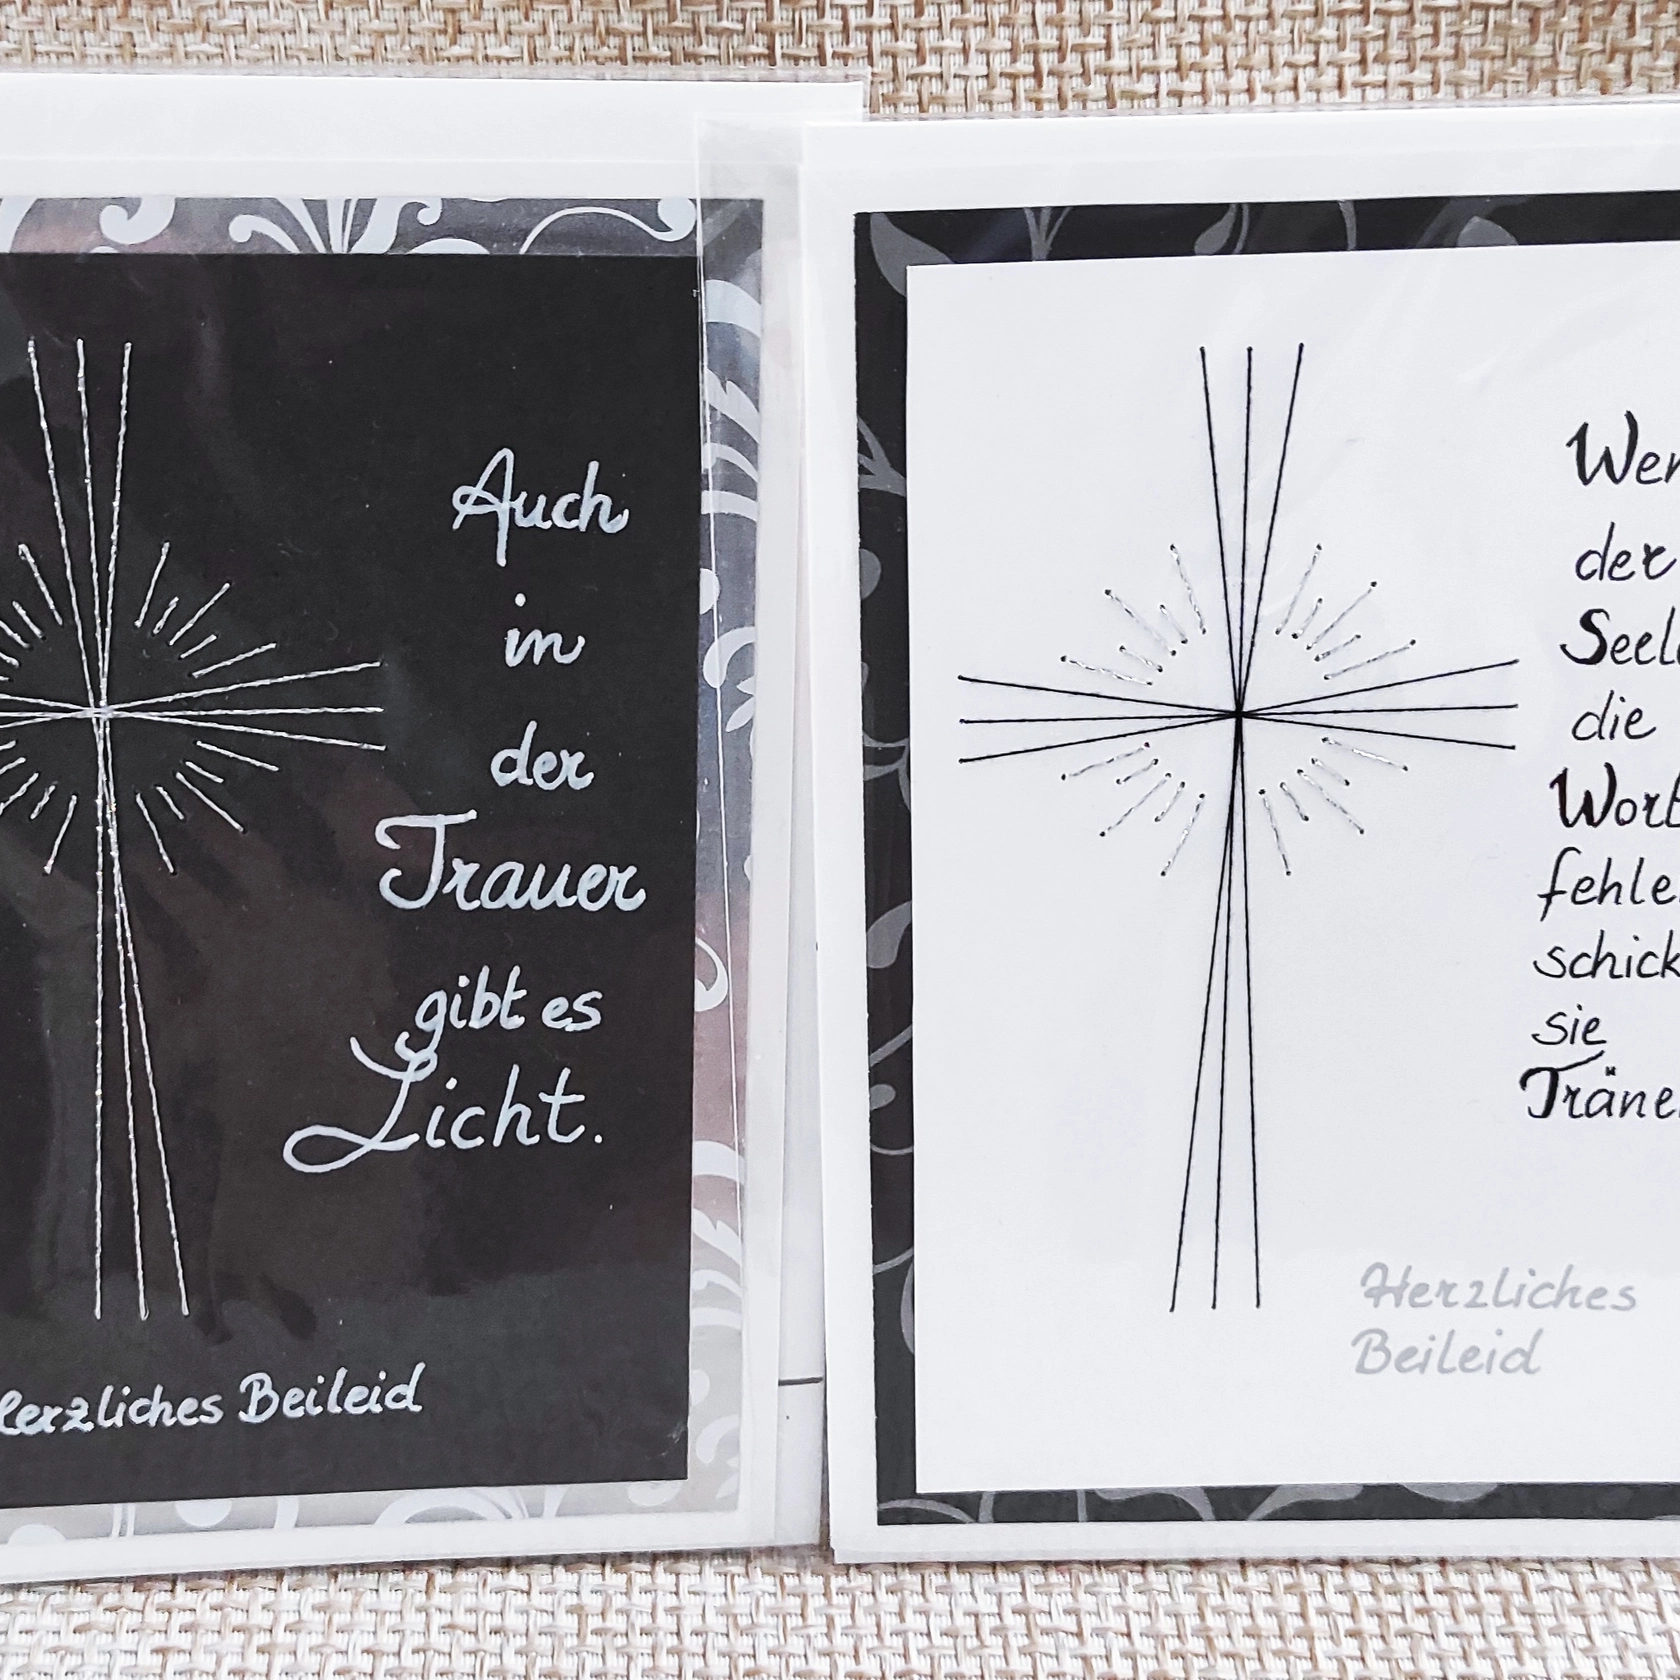 Auch
in
der
Trauer
gibt es
Licht.
Herzliches Beileid
Wen
der
Seele
die
Worte
fehlen
schick
sie
Tränen
Herzliches
Beileid